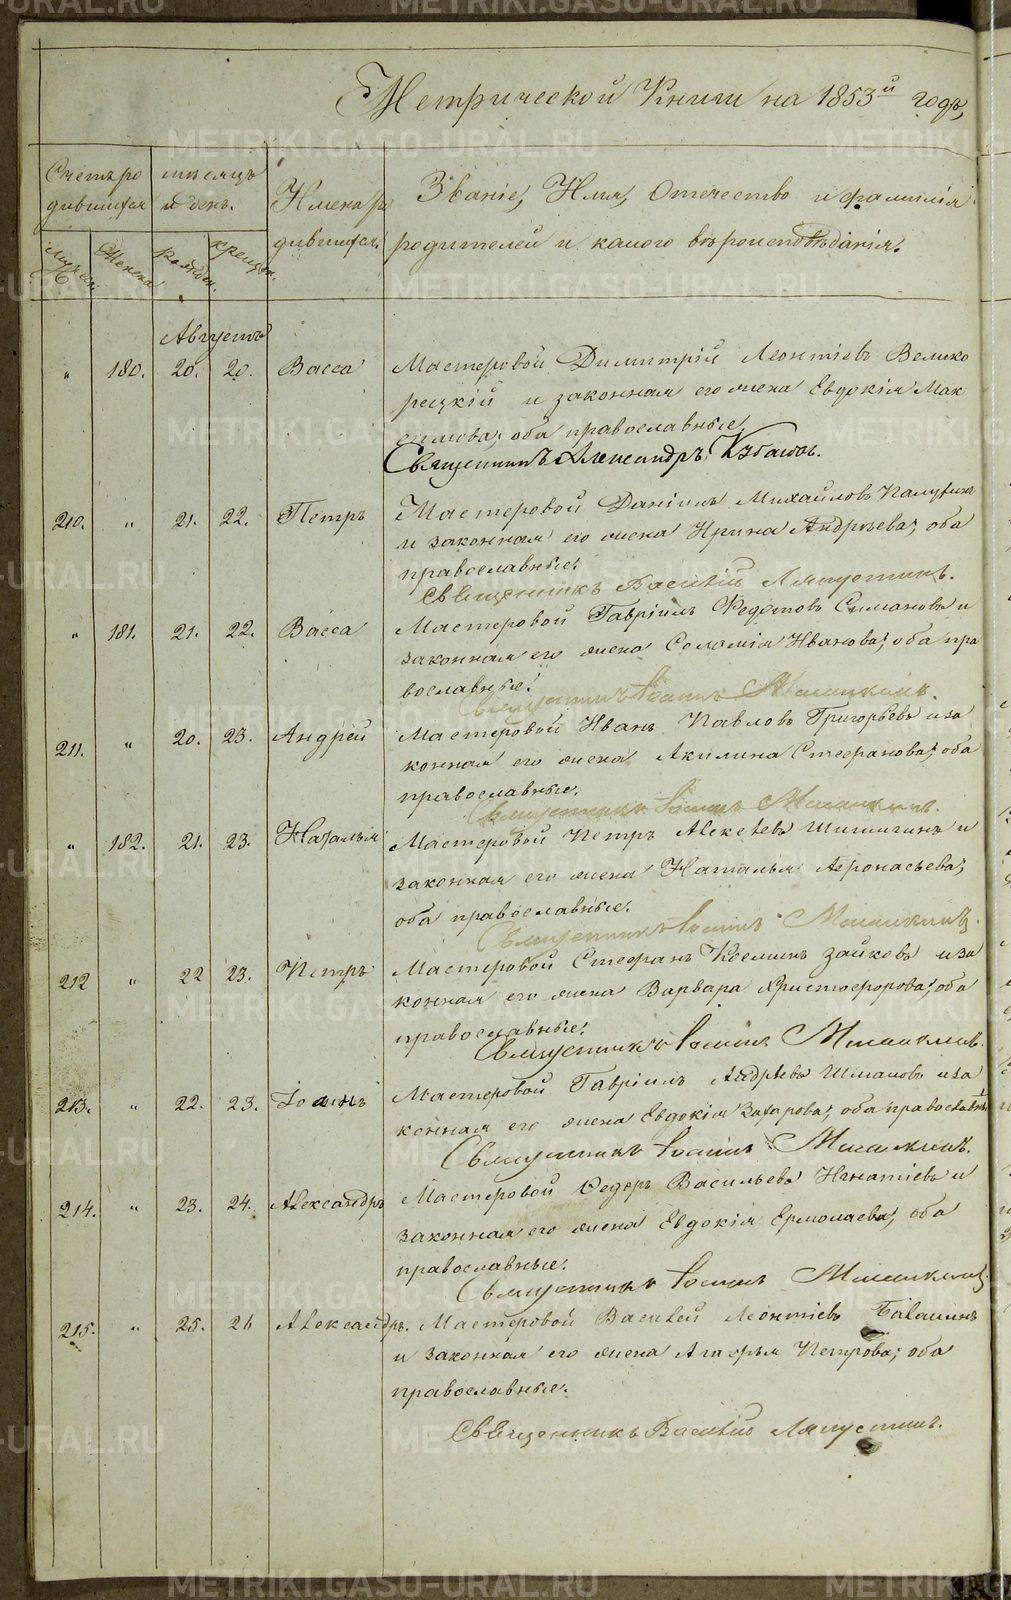 Метрической Книги на 1853й годъ,
Счетъ ро
дившихся
месяцъ
и день.
Имена ро
дившихся.
Званіе, Имя, Отечество и фамилія
родителей и какого вѣроисповѣданія.
Мужеск.
Женска
рожден.
крещен.
Августъ
" 180. 20. 20. Васса Мастеровой Димитрій Леонтіевъ Велико
рецкій и законная его жена Евдокія Мак
симова; оба православные.
Священникъ Александръ
210. " 21. 22. Петръ Мастеровой Даніилъ Михайловъ
и законная его жена Ирина Андреева; оба
православные.
Священникъ Василій Ляпустинъ.
" 181. 21. 22. Васса Мастеровой Гавріилъ Федотовъ Симановъ и
законная его жена Соломія Иванова; оба пра
вославные.
Священникъ Іоаннъ
211. " 20. 23. Андрей Мастеровой Иванъ Павловъ Григорьевъ и за
конная его жена Акилина Стефанова; оба
православные.
Священникъ Іоаннъ
" 182. 21. 23. Наталья Мастеровой Петръ Алексѣевъ Шишигинъ и
законная его жена Наталья Афонасьева;
оба православные.
Священникъ Іоаннъ
212 " 22 23. Петръ Мастеровой Стефанъ Косминъ Зайковъ и за
конная его жена Варвара Христофорова; оба
православные.
Священникъ Іоаннъ
213. " 22. 23. Іоаннъ Мастеровой Гавріилъ Андрѣевъ Шмаковъ и за
конная его жена Евдокія Захарова; оба православн
Священникъ Іоаннъ
214. " 23. 24. Александръ Мастеровой Федоръ Васильевъ Игнатіевъ и
законная его жена Евдокія Ермолаева; оба
православные.
Священникъ Іоаннъ
215. " 25. 26 Александръ. Мастеровой Василей Леонтіевъ
и законная его жена Агафья Петрова; оба
православные.
Священникъ Василій Ляпустинъ.
METRIKI.GASO-URAL.RU